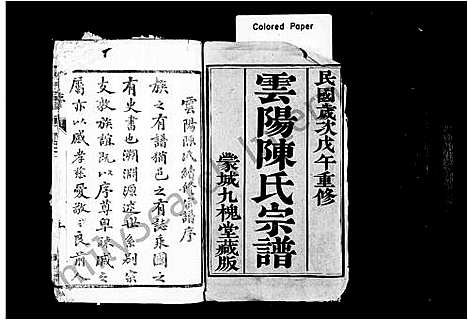 Colored Paper
民國歲次戊午重修
雲陽陳氏宗譜
蒙城九槐堂藏版
雲陽陳氏續修宗譜序
族之有譜猶邑之有誌乘國之
有史書也溯淵源述世系別宗
支敦族誼既以序尊卑疎戚之
屬亦以感孝慈愛敬之良前人